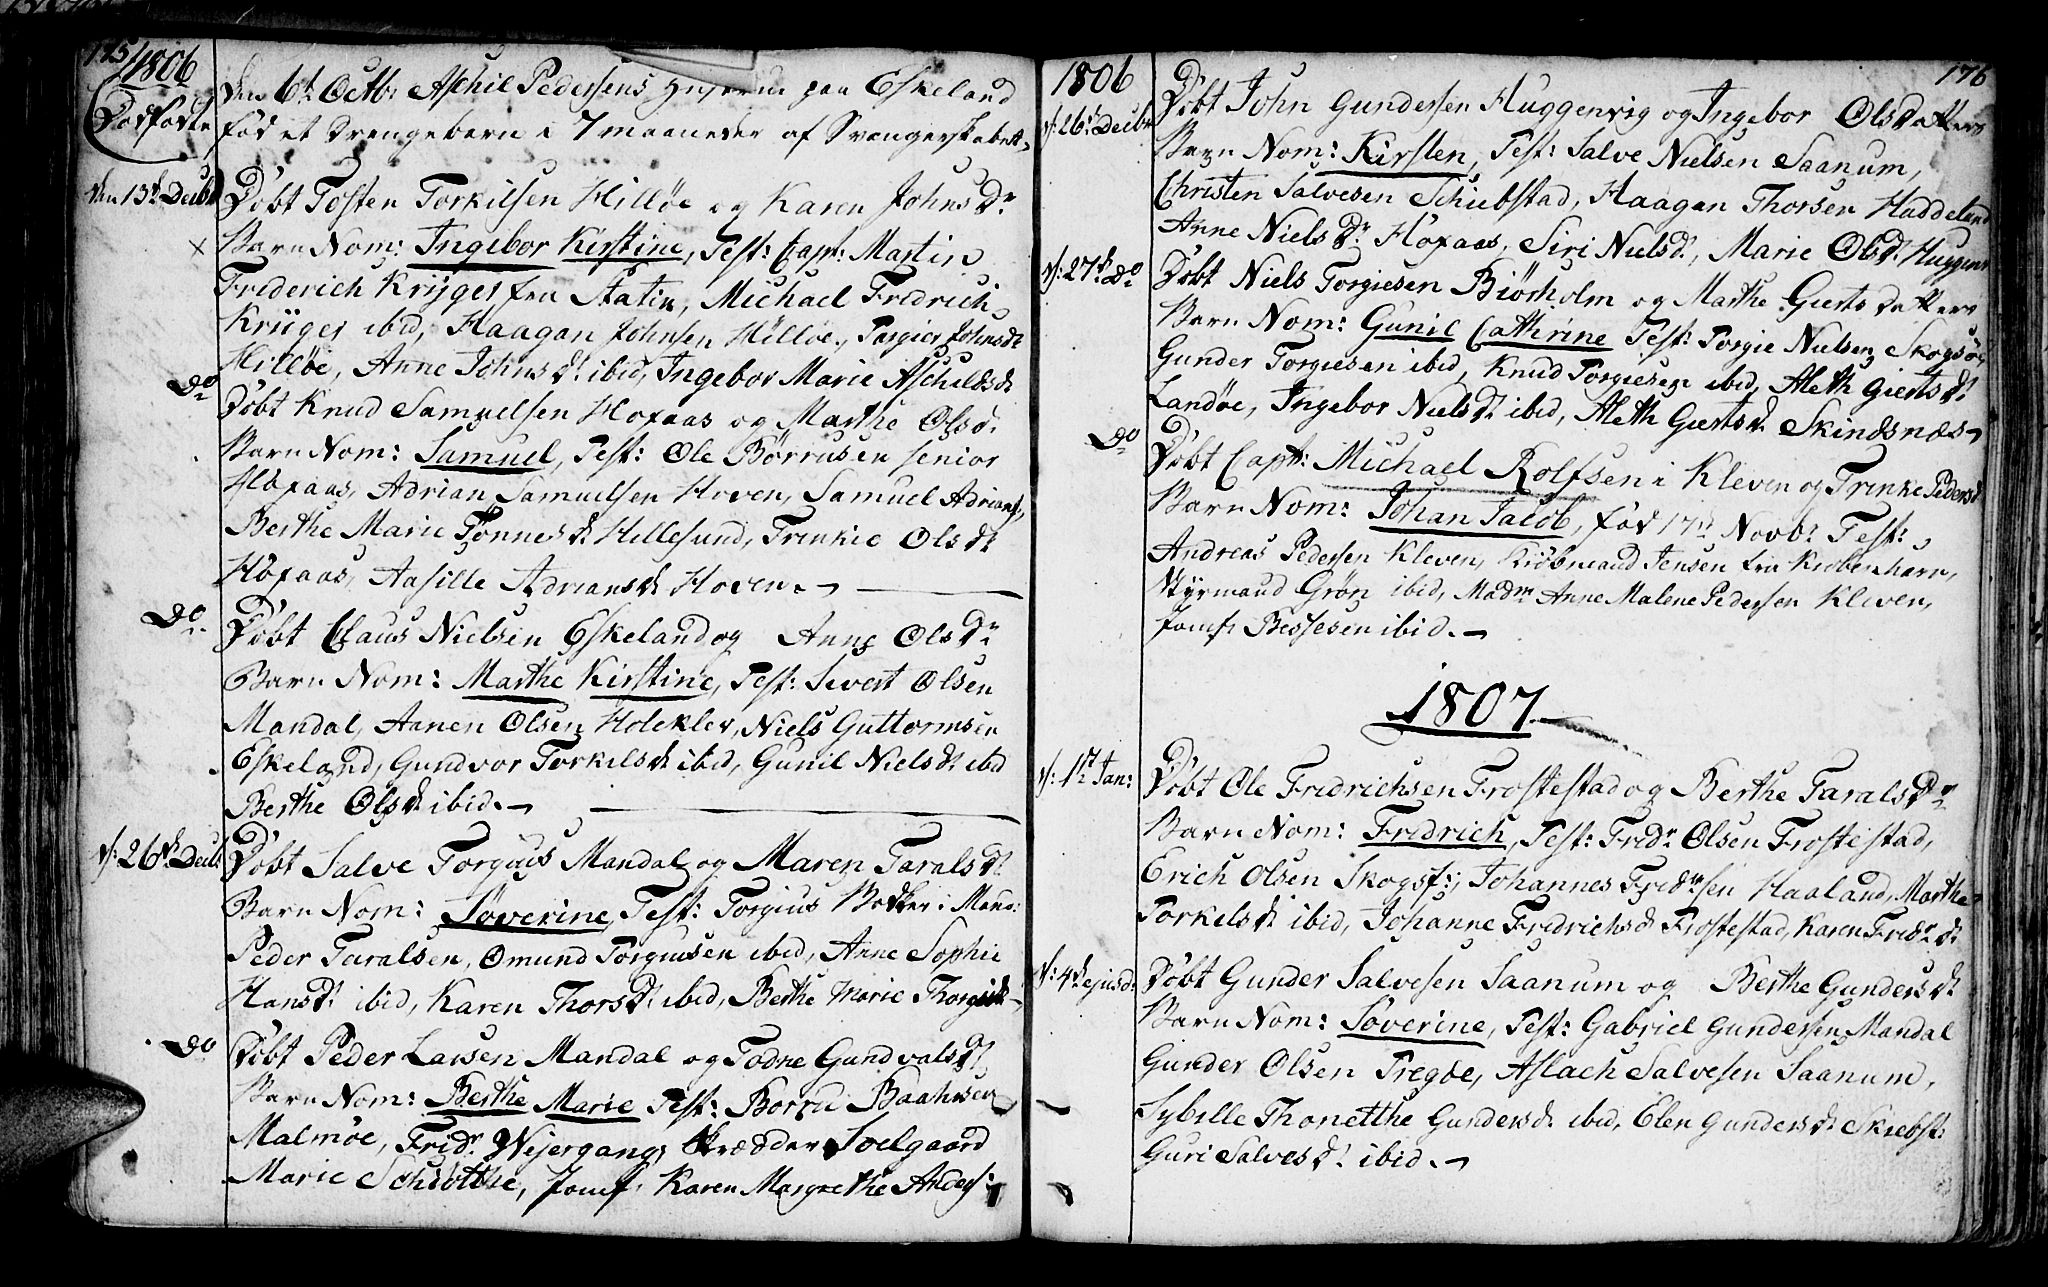 175
1806
Dødfødte
den 6t Octb: Aschil Pedersens Hustrue paa Eskeland
fød et Drengebarn i 7 maaneder af Svangerskabet
den 13de Decbr
Døbt Tosten Torkilsen Hilløe og Karen Johns Dr
Barn Nom: Ingebor Kirstine, Test: Capt: Martin
Friderich Krüger fra Statin, Michael Fredrich
Krüger ibid, Haagan Johnsen Hilløe, Torgier Johnsd:
Hilløe, Anne Johns dt ibid, Ingebor Marie Aschilds d:
Do
Døbt Knud Samuelsen Hofaas og Marthe Olsd:
Barn Nom: Samuel, Test: Ole Børrusen senior
Höfaas, Adrian Samuelsen Hoven, Samuel Adrians:,
Berthe Marie Tønnes dt Hillesund, Trinkie Ols dt
Höfaas, Aasille Adriansd Hoven.
Do
Døbt Claus Nielsen Eskeland og Anne Ols Dr
Barn Nom: Marthe Kirstine, Test: Sivert Olsen
Mandal, Aanen Olsen Holekler, Niels Guttormsen
Eskeland, Gundvor Torkelsdt ibid, Gunil Nielsdt ibid
Berthe Olsdt ibid.
d: 26de Decb
Døbt Salve Torgius Mandal og Maren Tarals dt
Barn Nom: Søverine, Test: Torgius Bødker i Man:
Peder Taralsen, Omund Torgiusen ibid, Anne Sophie
Hansdt ibid, Karen Thorsdt ibid, Berthe Marie Thorgisd
Do
Døbt Peder Larsen Mandal og Todne Gundvalsdt
Barn Nom: Berthe Marie Test: Borru Baahnsen
Malmøe, Fridr Weyergang, Skrædder Soelgaard
Marie Schiøtthe, Jomf: Karen Margrethe Anders:
176
1806
d: 26de Decbr
Døbt John Gundersen Huggenvig og Ingebor Olsdatters
Barn Nom: Kirsten, Test: Salve Nielsen Saanum,
Christen Salvesen Schiebstad, Haagan Thorsen Haddeland
Anne Niels Dr Höfaas, Siri Nielsd:, Marie Olsdt Huggenv
d: 27de Do
Døbt Niels Torgiesen Biørholm og Marthe Gierts datters
Barn Nom: Gunil Cathrine Test: Torgie Nielsen Skogsøe
Gunder Torgiesen ibid, Knud Torgiesen ibid, Aleth Giertsdt
Landøe, Ingebor Nielsdt ibid, Aleth Giertsd: Skindsnæs
Do
Døbt Capt: Michael Rolfsen i Kleven og Trinke Pedersd
Barn Nom: Johan Jacob, fød 17d Novbr Test:
Andreas Pedersen Kleven, Kiöbmand Jensen fra Kiøbenhavn,
Styrmand Grön ibid, Madm Anne Malene Pedersen Kleven,
Jomf: Bessesen ibid.
1807.
d: 1st Jan:
Døbt Ole Fridrichsen Frøstestad og Berthe Tarals Dr
Barn Nom: Fridrich, Test: Fridr Olsen Frøstestad,
Erich Olsen Skogsf:, Johannes Fridrsen Haaland, Marthe
Torkelsdt ibid, Johanne Fridrichsd Frøstestad, Karen Fridr dt
d: 4de ejusd:
Døbt Gunder Salvesen Saanum og Berthe Gundersdt
Barn Nom: Søverine, Test: Gabriel Gundersen Mandal
Gunder Olsen Tregde, Aslach Salvesen Saanum,
Sybille Thonetthe Gundersdt ibid, Elen Gundersdt Skiebst:
Guri Salvesdt ibid.